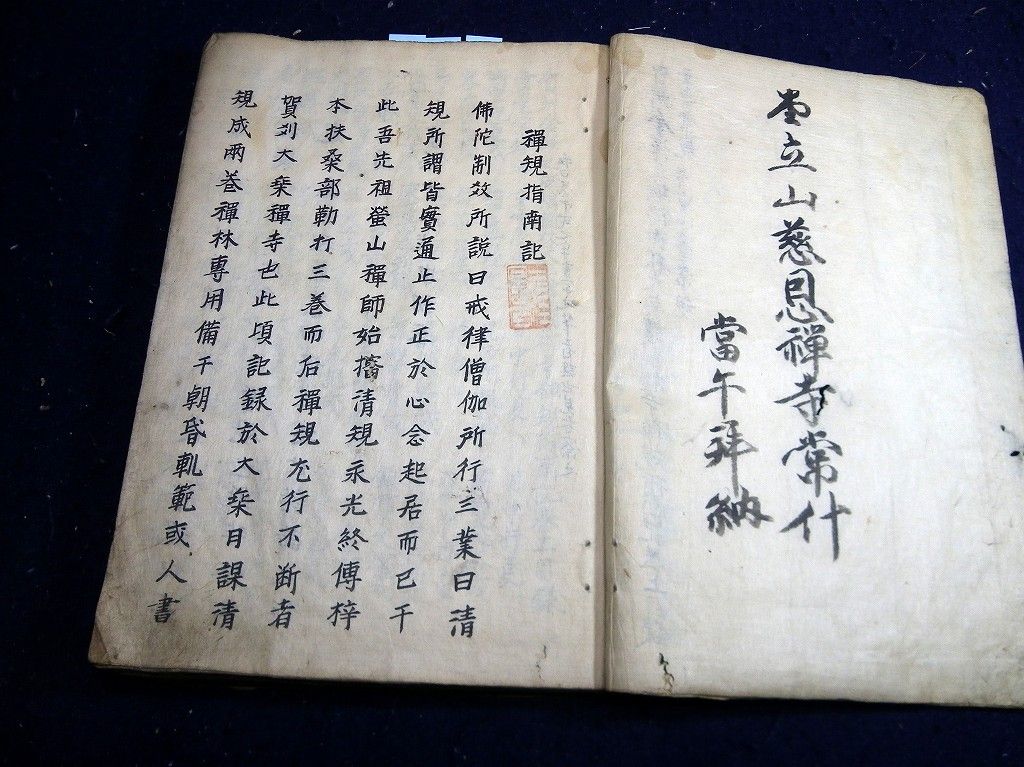 堂立山慈恩禅寺常什
當午拜納
禪規指南記
佛陀制效所説曰戒律僧伽所行三業曰清
規所謂皆實通止作正於心念起居而已于
此吾先祖瑩山禪師始搐清規永光終傳梓
本扶桑部勒打三巻而后禪規尤行不断者
賀刕大椉禪寺也此頃記録於大椉月課清
規成兩巻禪林專用備于朝昏軌範或人書